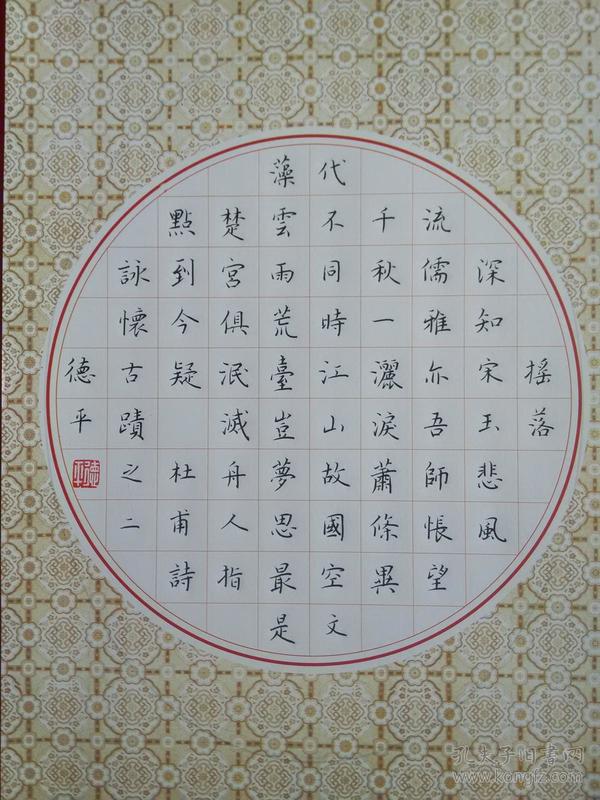 搖落
深知宋玉悲風
流儒雅亦吾師悵望
千秋一灑淚蕭條異
代不同時江山故國空文
藻雲雨荒臺豈夢思最是
楚宮俱泯滅舟人指
點到今疑 杜甫詩
詠懷古蹟之二
德平
德平
孔夫子旧書网
www.kongfz.com